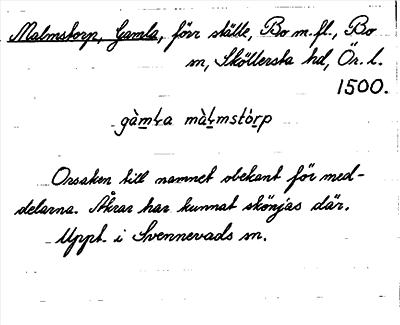 Malmstorp, Gamla, förr ställe, Bo m.fl., Bo
sn, Sköllersta hd, Ör. l.
1500.
gàm̱ła màł̱mstò̱rp
Orsaken till namnet obekant för med-
delarna. Åkrar har kunnat skönjas där.
Uppt. i Svennevads sn.